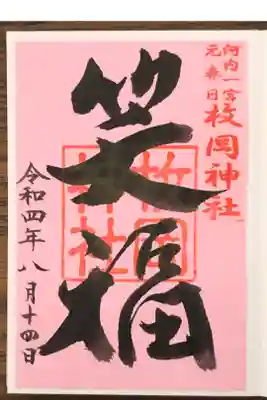 河内一宮
元春日
枚岡神社
笑福
枚岡
神社
令和四年八月十四日